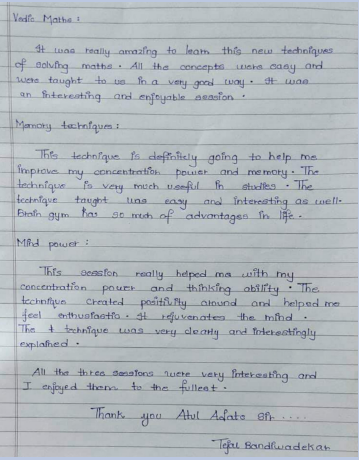 Vedic Maths :
It was really amazing to learn this new techniques
of solving maths. All the concepts were easy and
were taught to us in a very good way. It was
an interesting and enjoyable session.
Memory techniques :
This technique is definitely going to help me
improve my concentration power and memory. The
technique is very much useful in studies. The
technique taught was easy and interesting as well.
Brain gym has so much of advantages in life.
Mind power :
This session really helped me with my
concentration power and thinking ability. The
technique created positivity around and helped me
feel enthusiastic. It rejuvenates the mind.
The t technique was very clearly and interestingly
explained.
All the three sessions were very interesting and
I enjoyed them to the fullest.
Thank you Atul Aphale Sir ....
Tejal Bandiwadekar